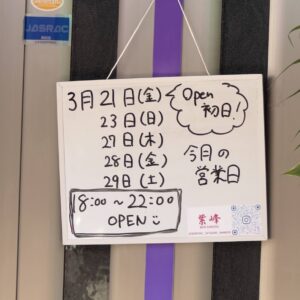 JASRAC
3月21日(金)
Open
初日!
23日(日)
27日(木)
28日(金)
29日(土)
今月の
営業日
18:00~22:00
OPEN
紫峰